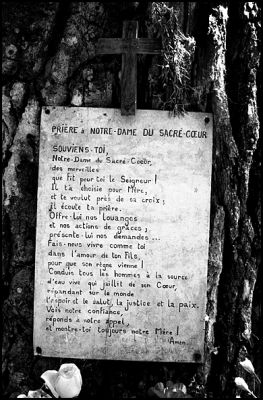 PRIÈRE à NOTRE-DAME DU SACRÉ-CŒUR
SOUVIENS-TOI,
Notre-Dame du Sacré-Cœur,
des merveilles
que fit pour toi le Seigneur !
Il t'a choisie pour Mère,
et te voulut près de sa croix ;
il écoute ta prière.
Offre-lui nos louanges
et nos actions de grâces ;
présente-lui nos demandes ...
Fais-nous vivre comme toi
dans l'amour de ton Fils,
pour que son règne vienne !
Conduis tous les hommes à la source
d'eau vive qui jaillit de son Cœur,
répandant sur le monde
l'espoir et le salut, la justice et la paix.
Vois notre confiance,
réponds à notre appel
et montre-toi toujours notre Mère !
Amen